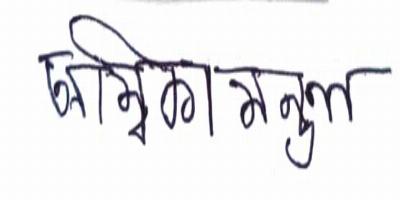 অম্বিকা মন্ডল